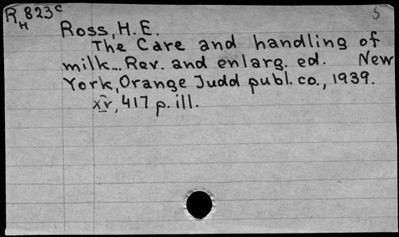 R823c 5
M
Ross, H. E.
The Care and handling of
milk... Rev. and enlarg. ed. New
York, Orange Judd publ. co., 1939.
xv, 417 p. ill.